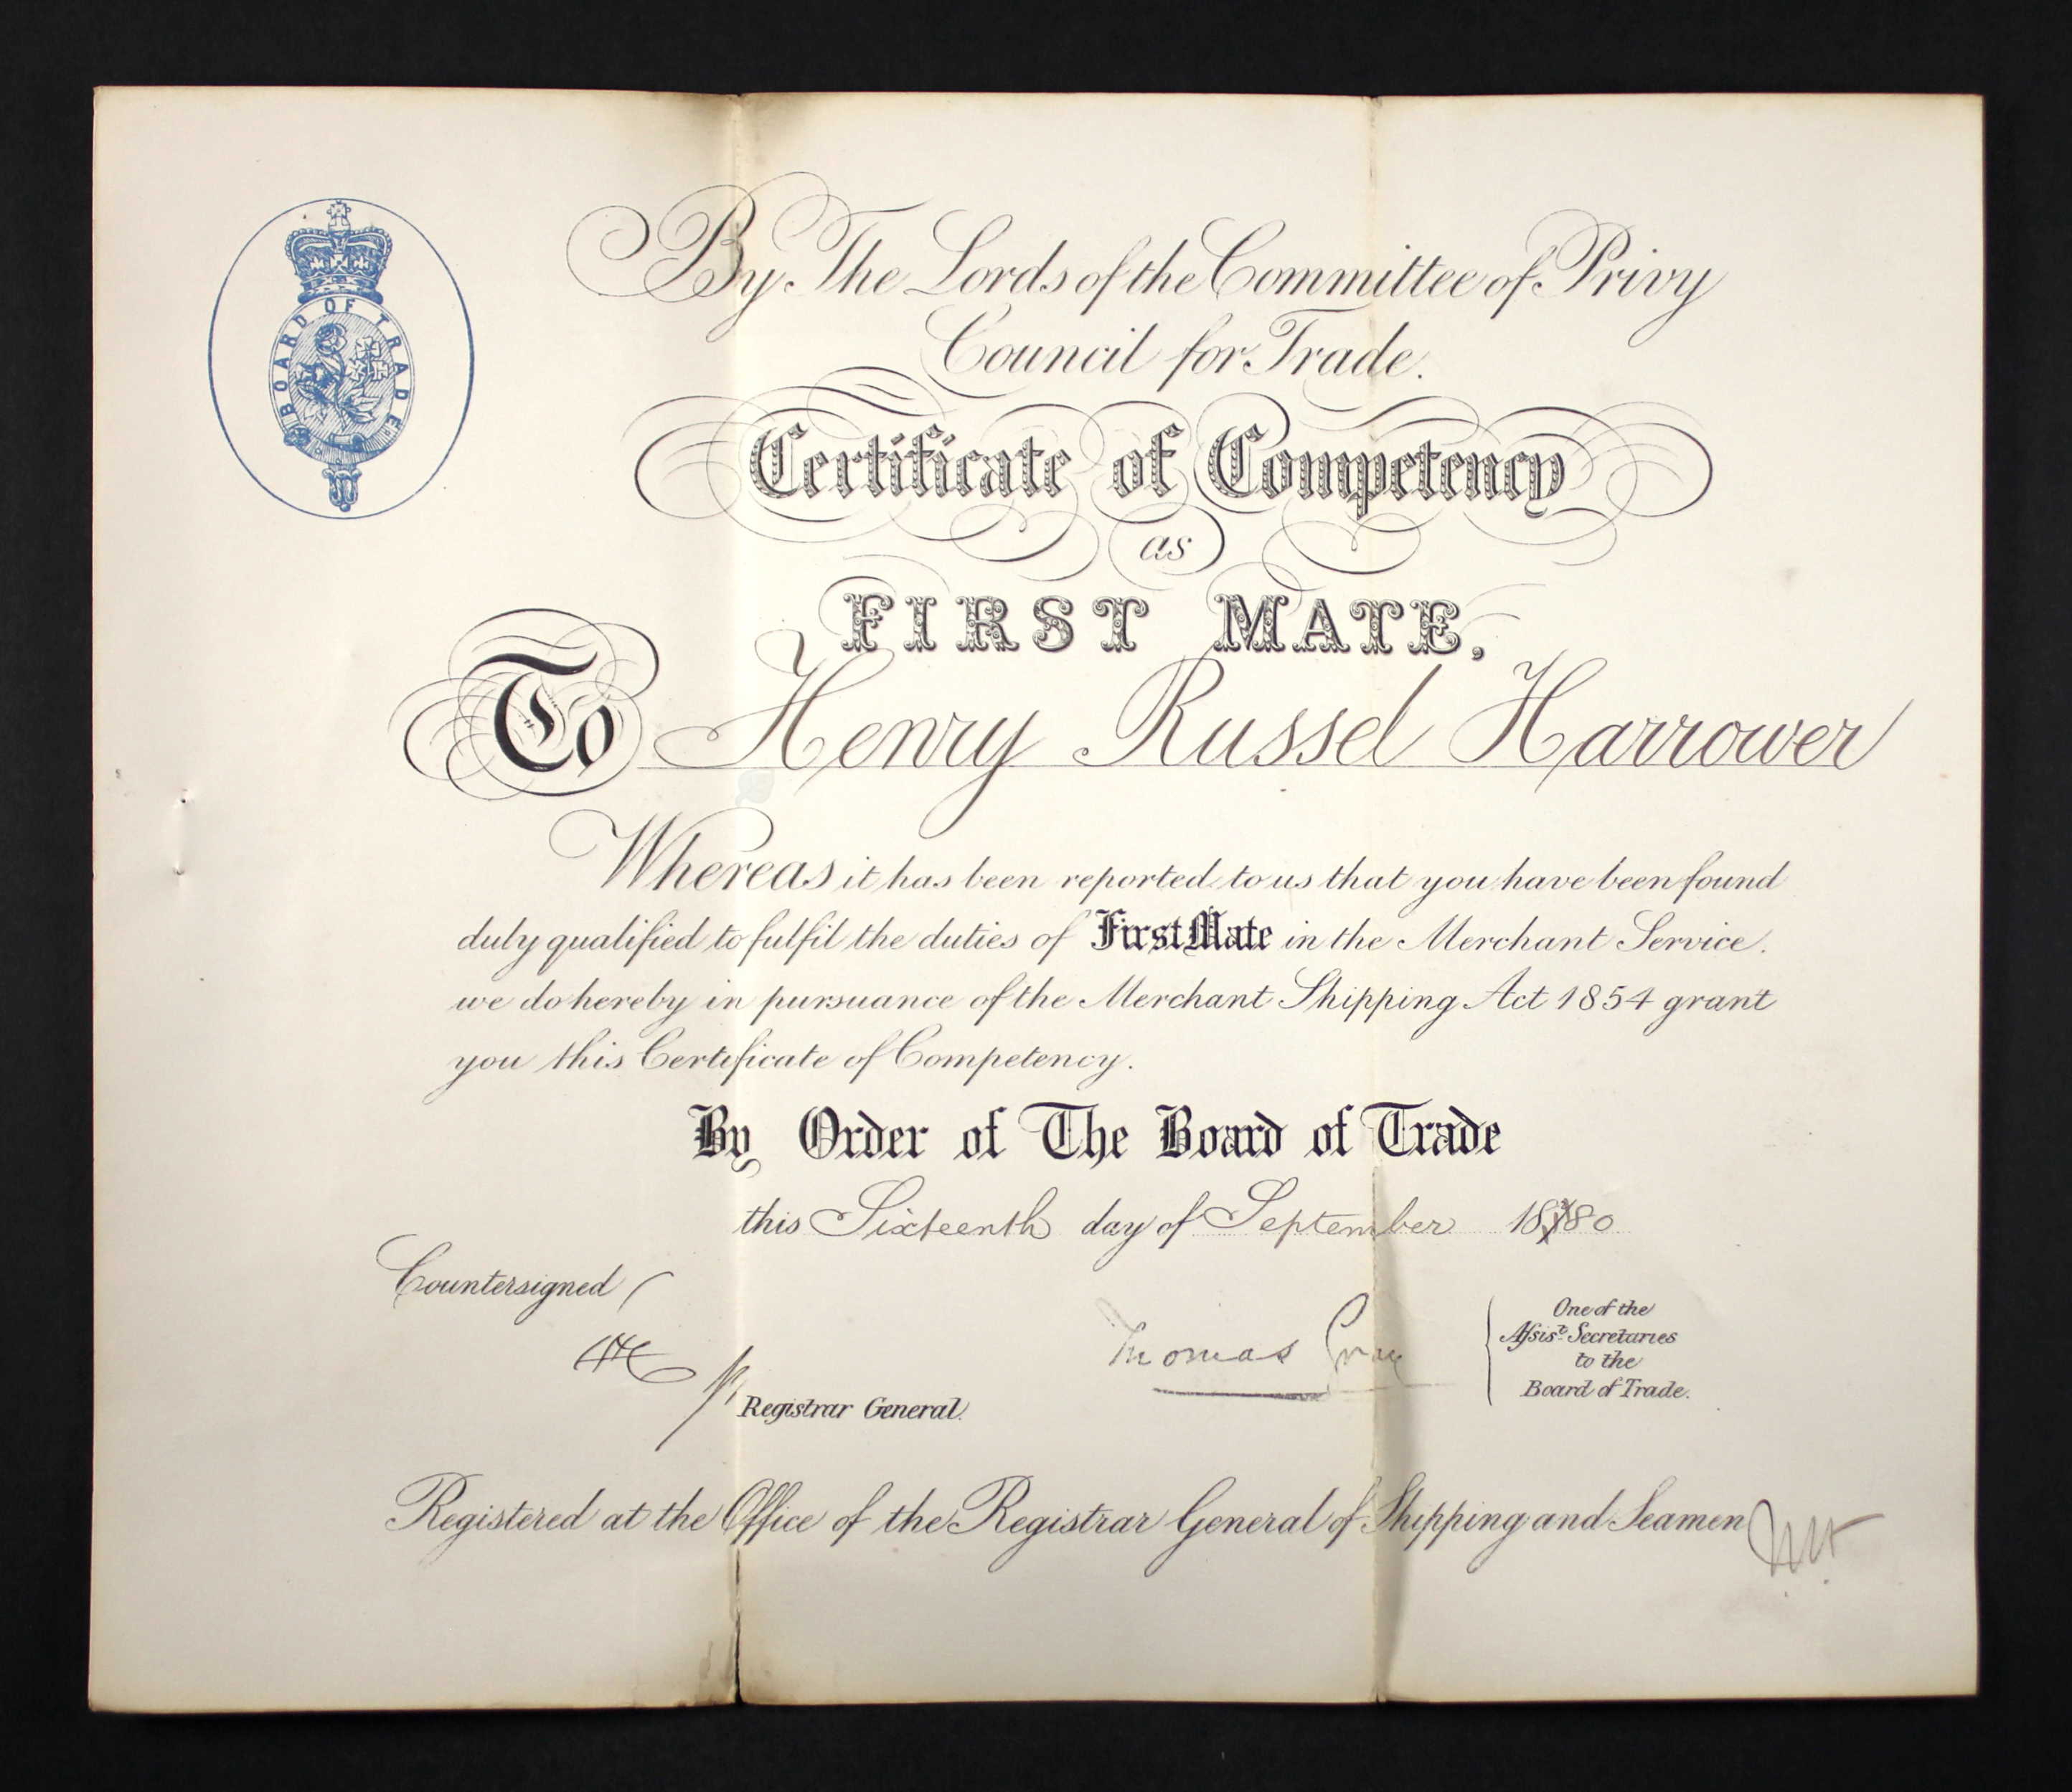 BOARD OF TRADE
By The Lords of the Committee of Privy
Council for Trade.
Certificate of Competency
as
FIRST MATE.
To Henry Russel Harrower
Whereas it has been reported to us that you have been found
duly qualified to fulfil the duties of First Mate in the Merchant Service.
we do hereby in pursuance of the Merchant Shipping Act 1854 grant
you this Certificate of Competency.
By Order of The Board of Trade
this Sixteenth day of September 1880
Countersigned
Registrar General.
Thomas Gray
One of the
Assist. Secretaries
to the
Board of Trade.
Registered at the Office of the Registrar General of Shipping and Seamen